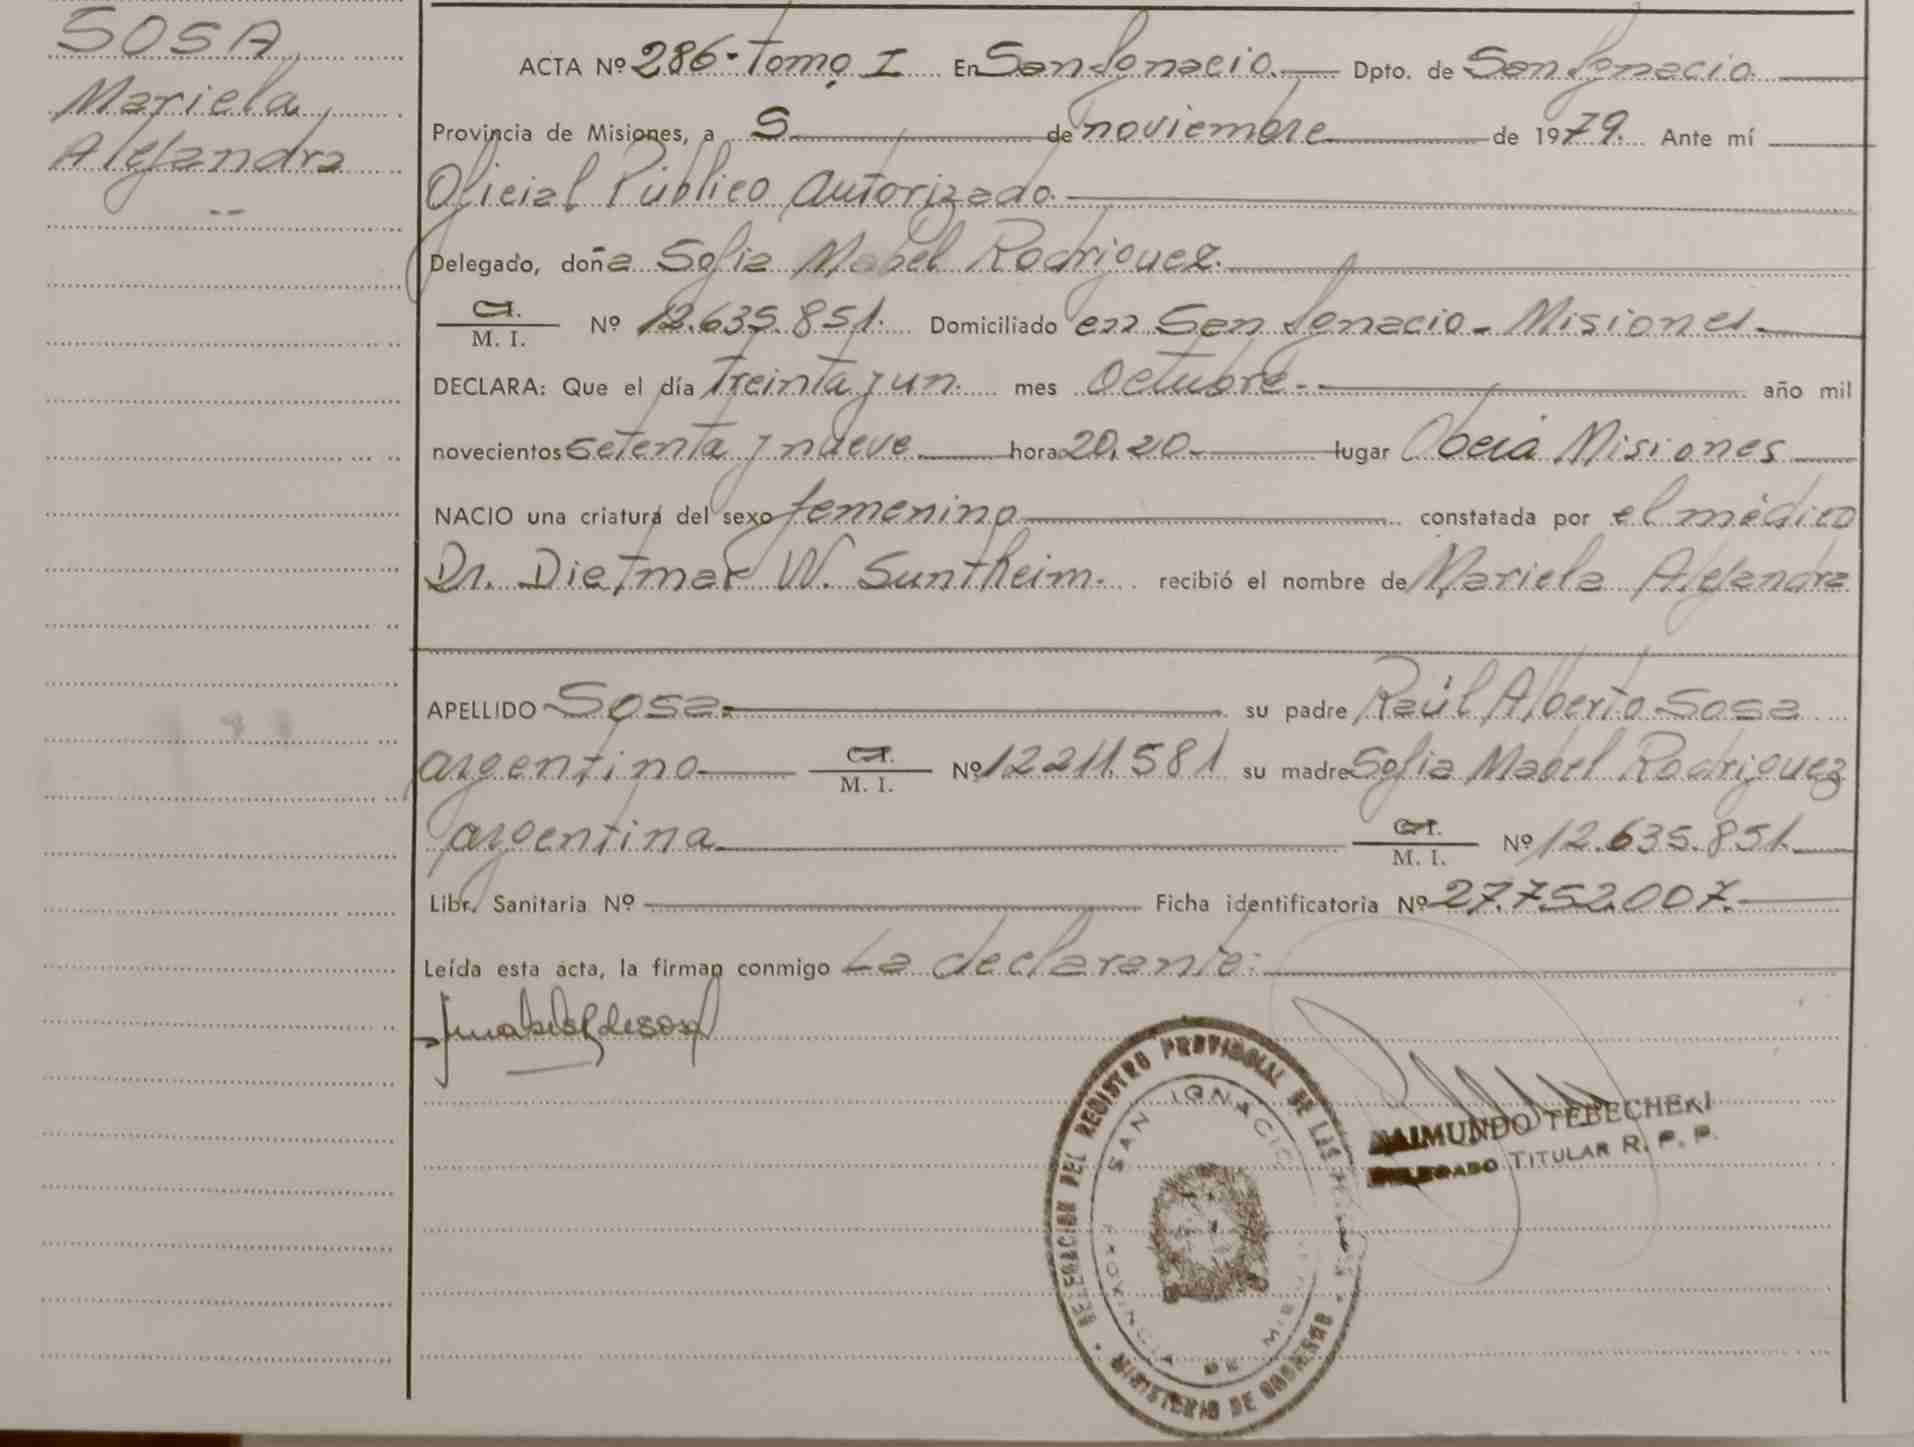 SOSA
Mariela
Alejandra
--
ACTA Nº 286- Tomo I En San Ignacio. Dpto. de San Ignacio
Provincia de Misiones, a 5 de noviembre de 1979. Ante mí
Oficial Público Autorizado.
Delegado, doña Sofia Mabel Rodriguez.
C.I.
M. I. Nº 12.635.851. Domiciliado en San Ignacio - Misiones.
DECLARA: Que el día treinta y un. mes Octubre.- año mil
novecientos setenta y nueve hora 20,20.- lugar Oberá Misiones
NACIO una criatura del sexo femenino constatada por el médico
Dr. Dietmar W. Suntheim. recibió el nombre de Mariela Alejandra
APELLIDO Sosa. su padre Raúl Alberto Sosa
argentino C.I.
M. I. Nº 12211.581 su madre Sofia Mabel Rodriguez
argentina C.I.
M. I. Nº 12.635.851.
Libr. Sanitaria Nº Ficha identificatoria Nº 27.752.007.
Leída esta acta, la firman conmigo La declarante:
DELEGACION DEL REGISTRO PROVINCIAL DE LAS
MINISTERIO DE GOBIERNO
SAN IGNACIO
PROVINCIA DE MISIONES
RAIMUNDO TEBECHEKI
DELEGADO TITULAR R. P. P.